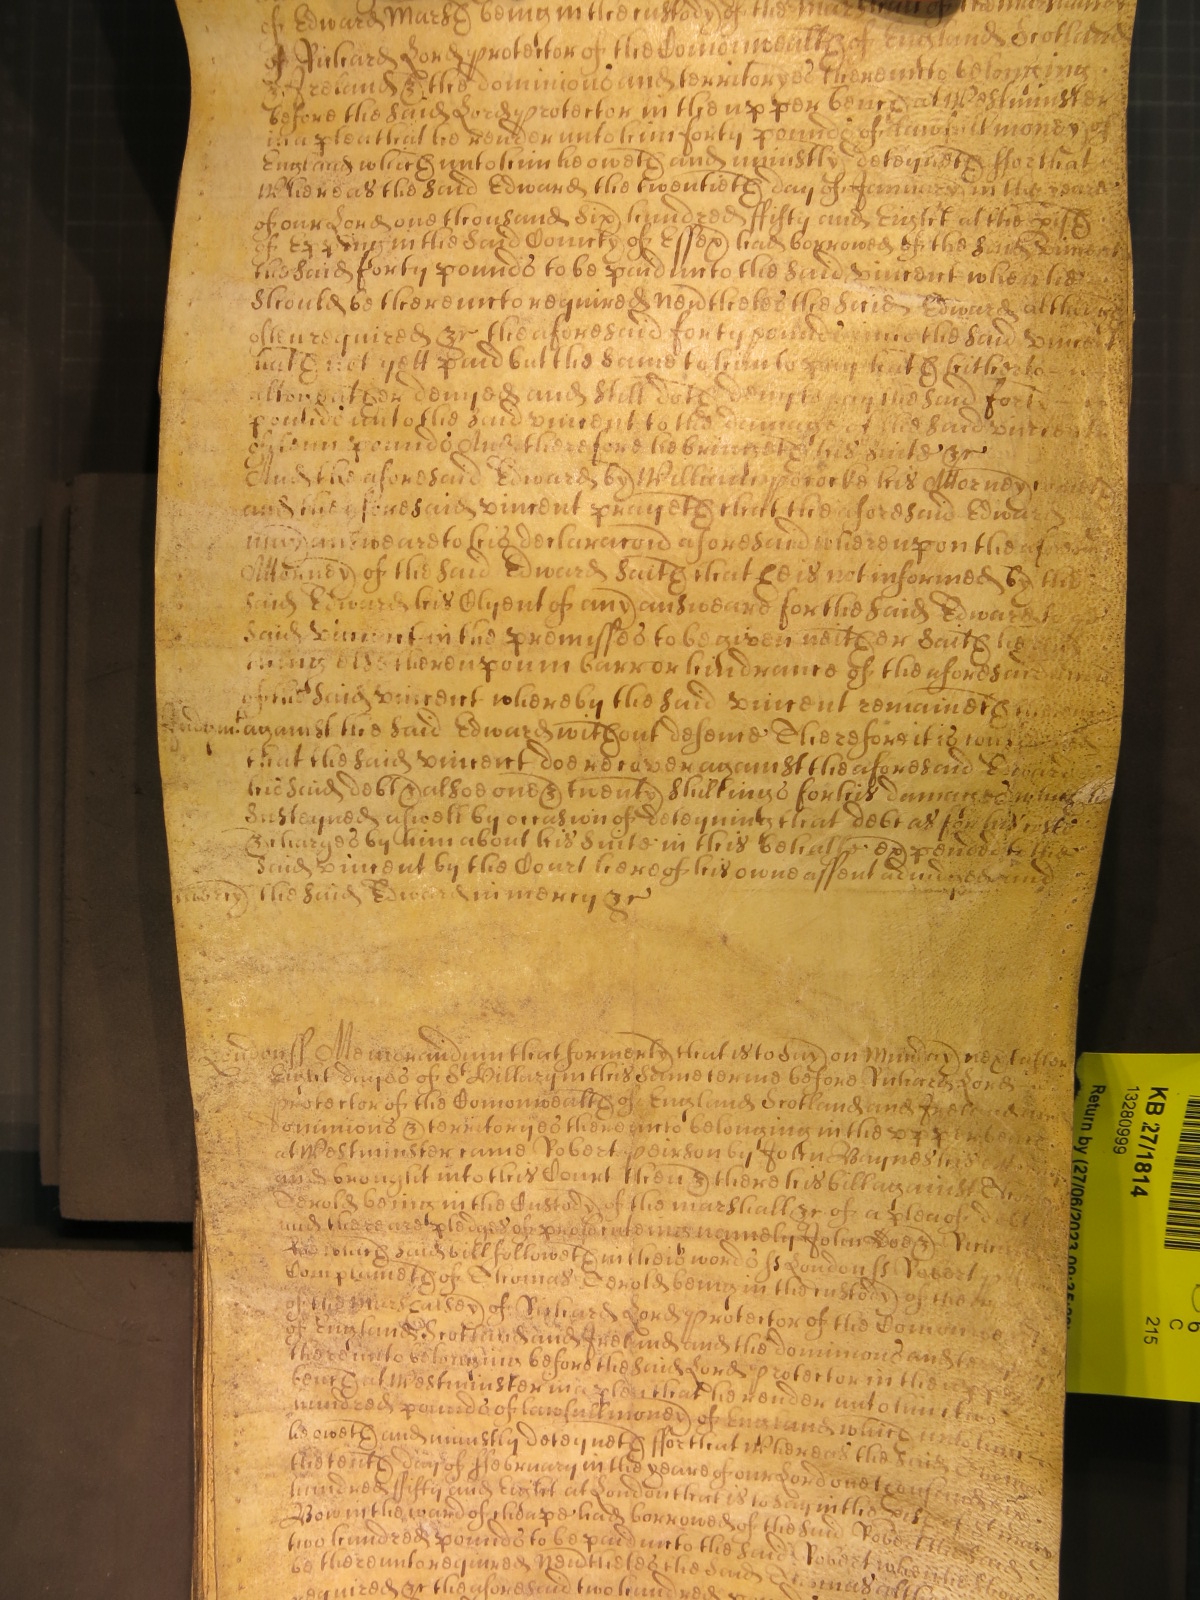 of Edward Marsh being in the custody of the marshall of the marshalsey
of Richard Lord protector of the Comonwealth of England Scotland
& Ireland & the dominions and territoryes thereunto belonging
before the said Lord protector in the upper bench at Westminster
in a plea that he render unto him forty pounds of lawfull money of
England which unto him he oweth and uniustly deteyneth ffor that
Whereas the said Edward the twentieth day of January in the yeare
of our Lord one thousand six hundred ffifty and Eight at the pish
of Epping in the said County of Essex had borrowed of the said vincent
the said forty pounds to be paid unto the said vincent when he
should be thereunto required Nevertheles the said Edward although
often required &c the aforesaid forty pounds unto the said vincent
hath not yett paid but the same to him to pay hath hitherto
altogether denyed and still doth deny to pay the said forty
pounds unto the said vincent to the damage of the said vincent
of tenn pounds And therefore he bringeth his suite &c
And the aforesaid Edward by William his Attorney
and the aforesaid vincent prayeth that the aforesaid Edward
may answeare to his declaracon aforesaid whereupon the aforesaid
Attorney of the said Edward saith that he is not informed by the
said Edward his Clyent of any answeare for the said Edward
said vincent in the premisses to be given neither saith he
thing else thereupon in barr or hindrance of the aforesaid
of the said vincent whereby the said vincent remaineth
against the said Edward without defence Therefore it is
that the said vincent doe recover against the aforesaid Edward
his said debt & alsoe one & twenty shillings for his damages which
susteyned aswell by occasion of deteyning that debt as for his costs
& charges by him about his suite in this behalfe expended to the
said vincent by the Court here of his owne assent adiudged and
mercy the said Edward in mercy &c
London ss Memorandum that formerly that is to say on Munday next after
Eight dayes of St Hillary in this same terme before Richard Lord
protector of the Comonwealth of England Scotland and Ireland
dominions & territoryes thereunto belonging in the upper bench
at Westminster came Robert peirson by John Baynes his
and brought into this Court then & there his bill against
Terold being in the Custody of the marshall &c of a plea of debt
and there are pledges of prosecuteing namely John Doe & Richard
Roe which said bill followeth in theis words ss London ss Robert
Complaineth of Thomas Terold being in the custody of the
of the marshalsey of Richard Lord protector of the Comonwe
of England Scotland and Ireland and the dominions and
thereunto belonging before the said Lord protector in the
bench at Westminster in a plea that he render unto him two
hundred pounds of lawfull money of England which unto him
he oweth and uniustly deteyneth ffor that Whereas the said
the tenth day of ffebruary in the yeare of our Lord one thousand six
hundred ffifty and Eight at London that is to say in the
Bow in the ward of cheape had borrowed of the said Robert the said
two hundred pounds to be paid unto the said Robert when he should
be thereunto required Nevertheles the said Thomas
required &c the aforesaid two hundred
KB 27/1814
13280999
Return by (27/06/2023
C
215